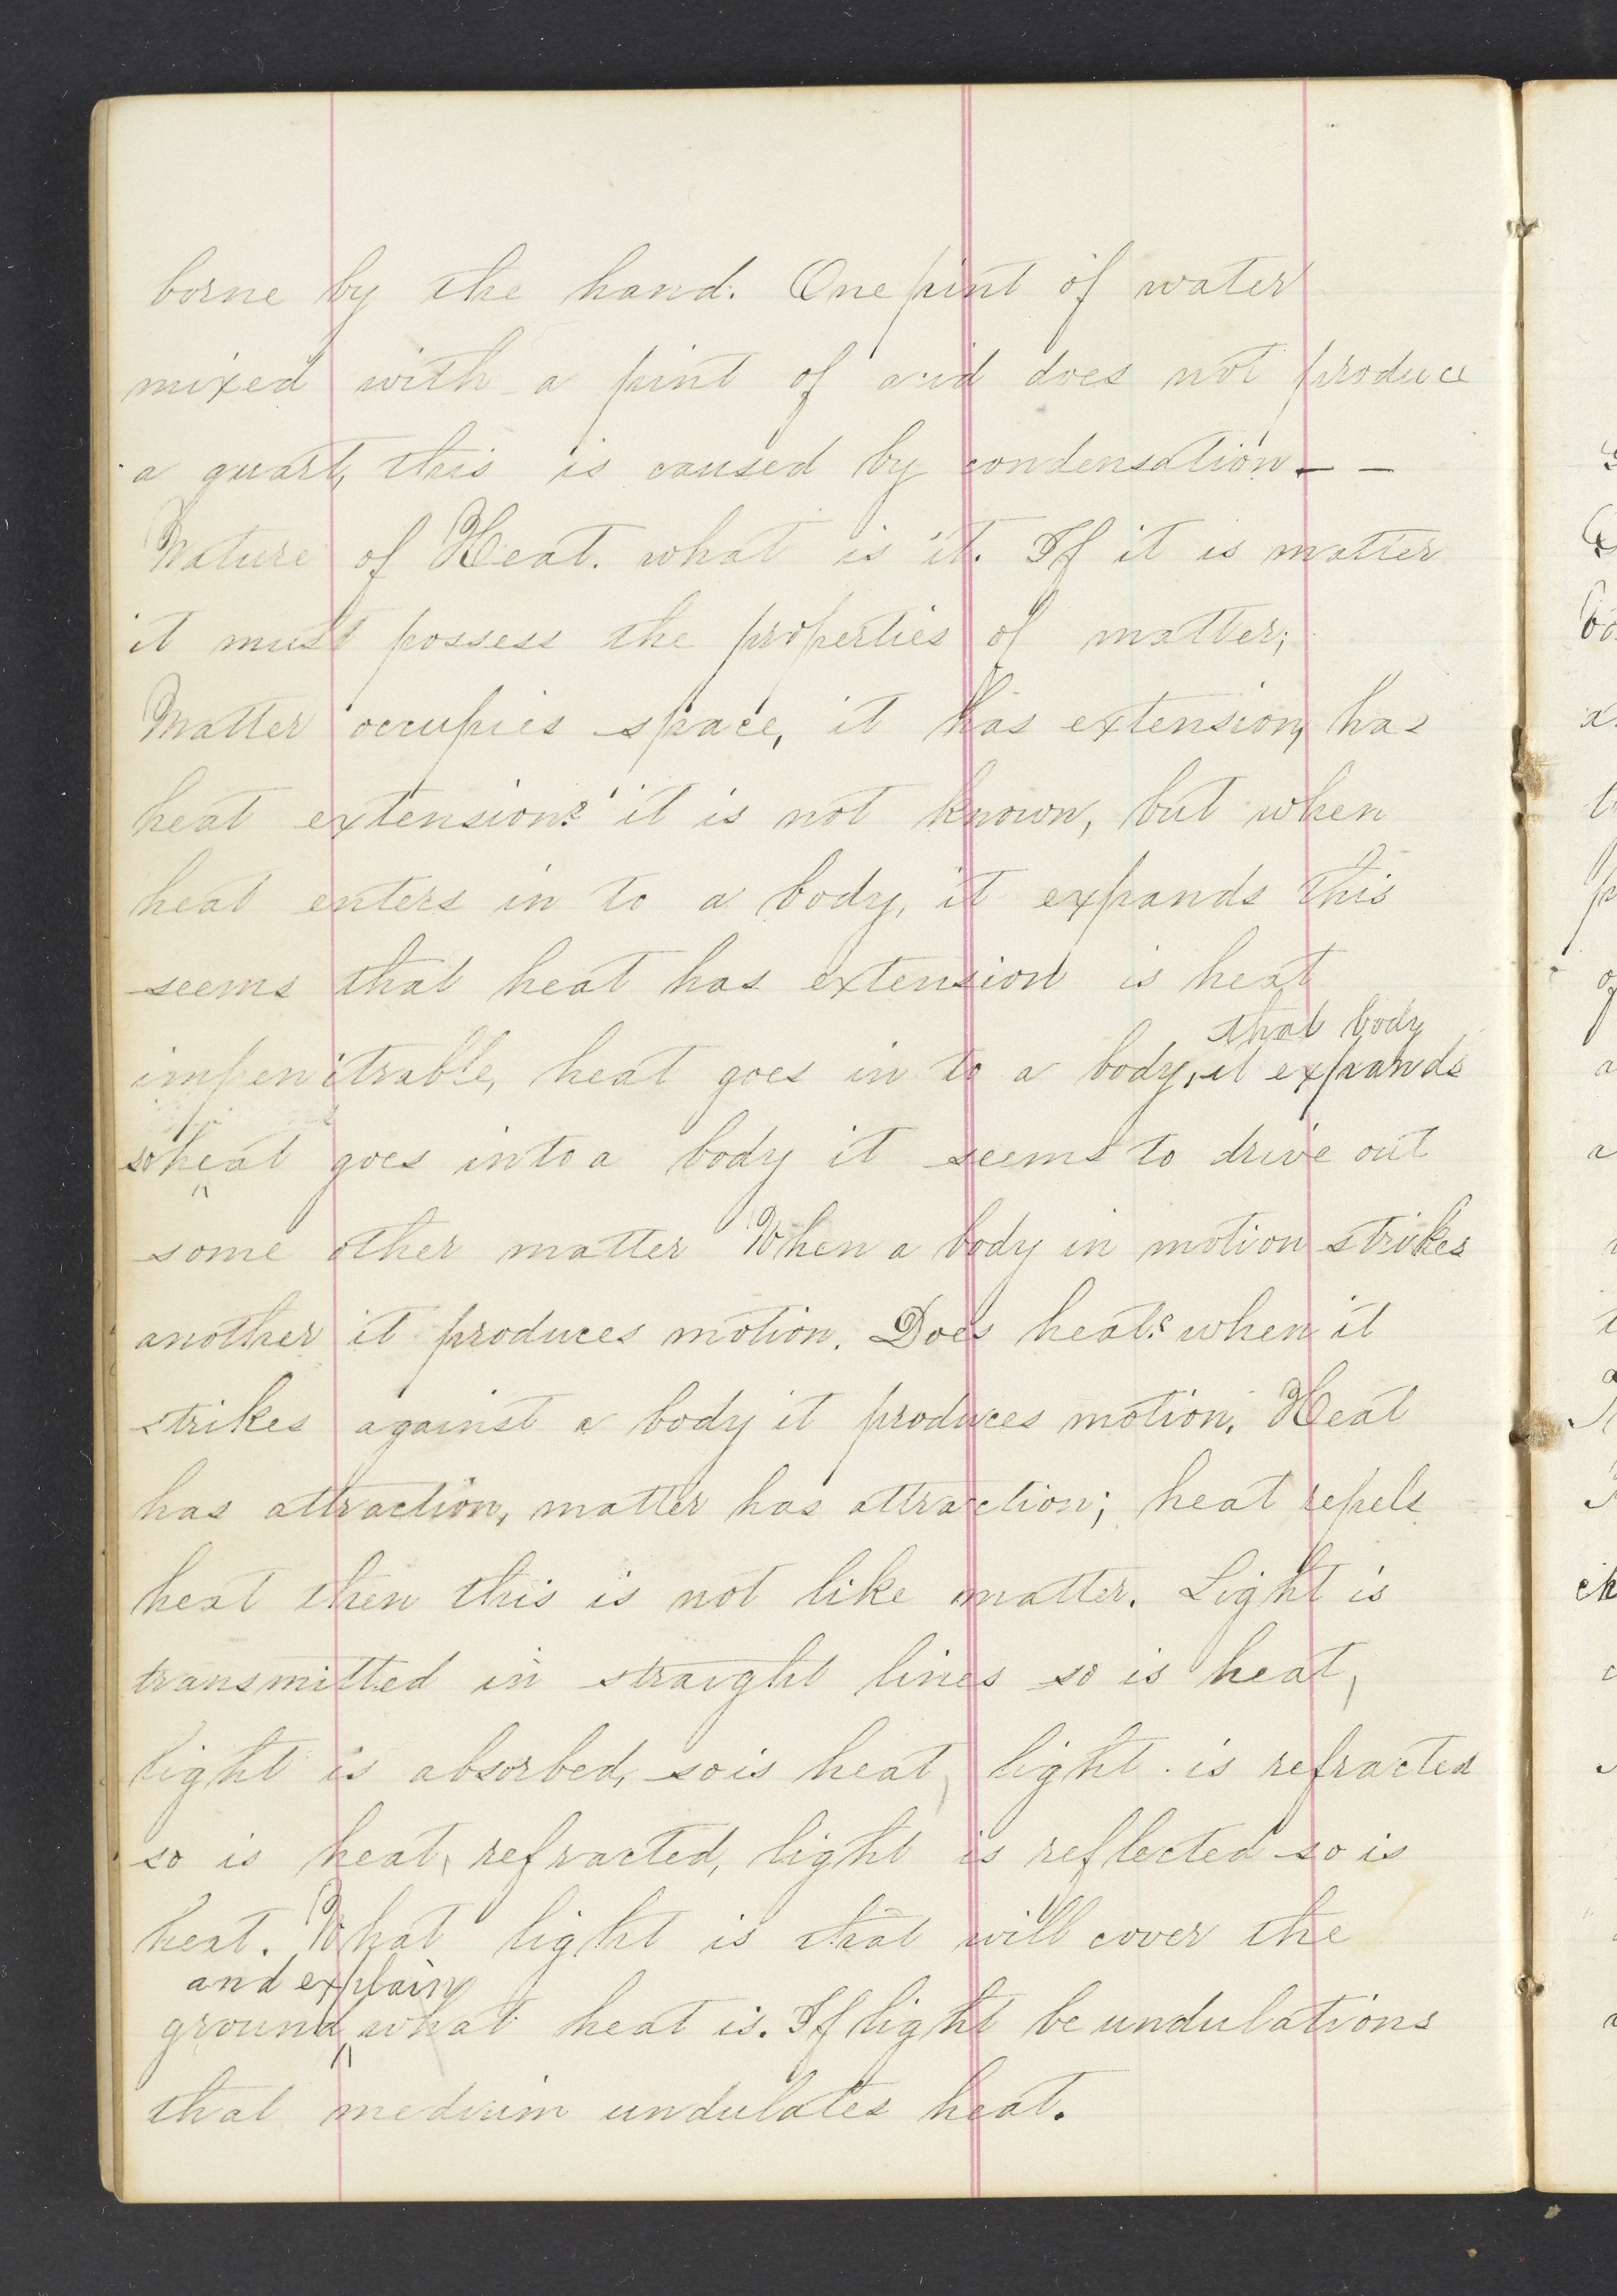 borne by the hand. One pint of water
mixed with a pint of acid does not produce
a quart, this is caused by condensation. —
Nature of Heat. what is it. If it is matter
it must possess the properties of matter;
Matter occupies space, it has extension, has
heat extension? it is not known, but when
heat enters in to a body, it expands this
seems that heat has extension is heat
that body
impenitrable, heat goes in to a body, it expands
so heat goes into a body it seems to drive out
some other matter When a body in motion strikes
another it produces motion. Does heat? when it
strikes against a body it produces motion. Heat
has attraction, matter has attraction; heat repels
heat then this is not like matter. Light is
transmitted in straight lines so is heat,
light is absorbed, so is heat, light is refracted
so is heat, refracted, light is reflected so is
heat. What light is that will cover the
and explain
ground, what heat is. If light be undulations
that medium undulates heat.